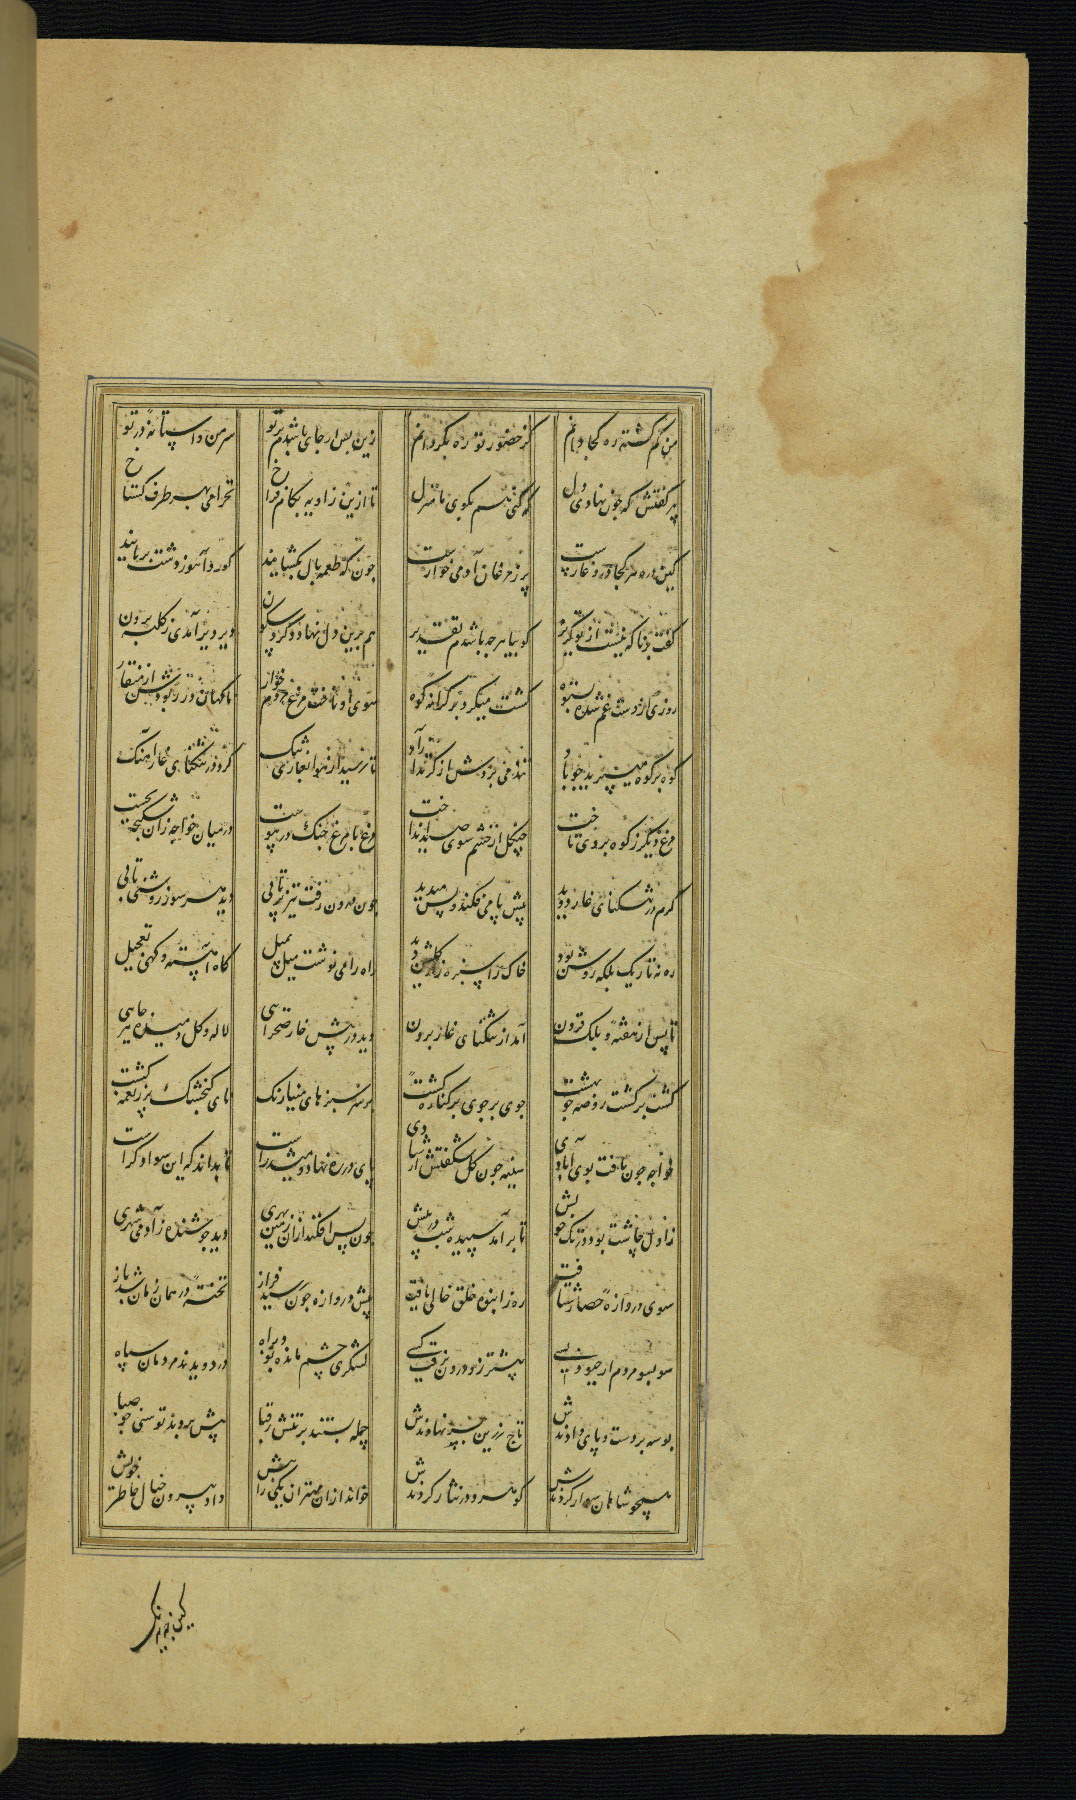 من گم گشته ره کجا دانم کز حضور تو ره بگردانم زین پس ار جای باشدم بر تو سر من و آستانهٔ در تو
پیر گفتش که چون نهادی دل که کنی نسم بکوی ما منزل تا ازین زاویه بکام فراخ نخرامی بهر طرف گستاخ
کین دره هر کجا در و غاریست پر ز مرغان آدمی خواریست چون که طعمه بال بگشایند گور و آهو ز دشت بربایند
گفت برنا که نیست از تو گریز گو بیا هر چه باشدم تقدیر هم برین دل نهاد و کرد سکون دیر دیر آمدی ز کلبه برون
روزی از دست غم شده بستوه گشت میکرد بر کرانهٔ کوه سوی او تاخت مرغ مردم خوار ناگهان در ربودش از منقار
کوه بر کوه میپرید چو باد تا نرسید از هوا بغاری تنگ کرد در تنگنای غار آهنگ
مرغ دیگر ز کوه بروی تاخت چنگل از خشم سوی صید انداخت مرغ با مرغ جنگ در پیوست در میان خواجه زان شکنجه بجست
گرم در تنگنای غار دوید پیش پا می فکند و پس میدید چون درون رفت تیز پرتابی دید هر سو ز روشنی تابی
ره نه تاریک بلکه روشن بود خاک را سبزه ز گلشن بود راه را می نوشت میل بمیل گاه آهسته و گهی تعجیل
تا پس از هفته و بلک فزون آمد از تنگنای غار برون دید در پیش خار صحرایی لاله و گل دمیده هر جایی
گشت بر گشت روضه چو بهشت جوی بر جوی بر کنارهٔ گشت بر سر سبزهای مینا رنگ
خواجه چون یافت بوی آبادی سینه چون گل شکفتش از شادی پای در ره نهاد و میشد راست تا بداند که این سواد کراست
ز اول چاشت بود در تک خویش تا بر آمد سپیده شب در پیش چون پس افکند از آن زمین بهری دید جوشنده ز آدمی شهری
سوی دروازهٔ حصار شتافت ره ز انبوه خلق خالی یافت پیش دروازه چون رسید فراز تختهٔ در همان زمان شد باز
سو بسو مردم از چپ و پسی پیشتر زو درون نرفت کسی لشکری چشم مانده بود براه در دویدند مردمان سپاه
بوسه بر دست و پای دادندش تاج زرین بسر نهادندش جمله بستند بر تنش ز قبا پیش بردند توسنی چو صبا
همچو شاهان سوار کردندش گوهر و در نثار کردندش خواند از آن مهتران یکی را پیش داد بیرون خیال خاطر خویش